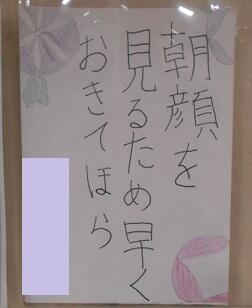 朝顔を
見るため早く
おきてほら